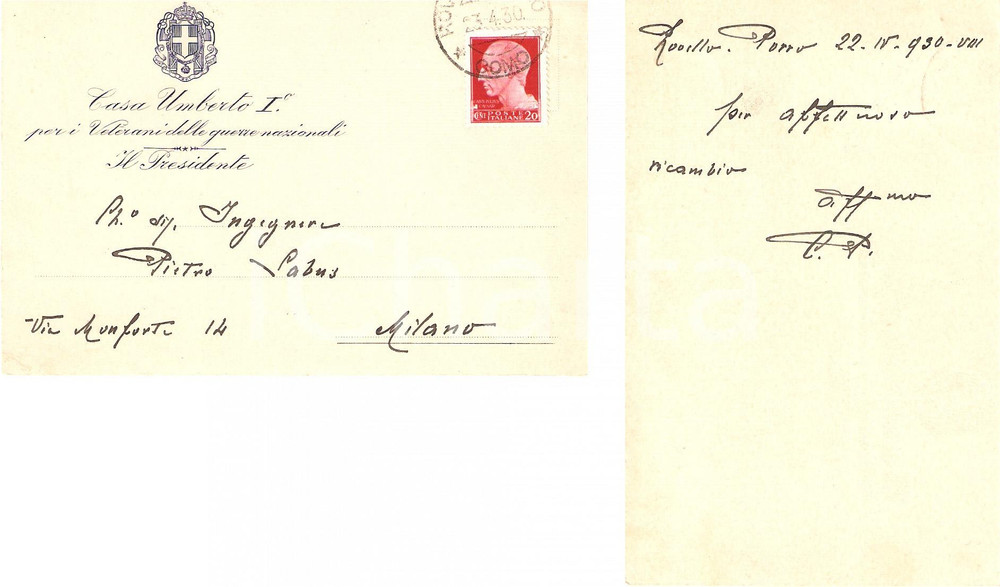 Casa Umberto I.º
per i Veterani delle guerre nazionali
Il Presidente
23.4.30.
COMO
POSTE
ITALIANE 20
Ch.º Ingegnere
Pietro Labus
Via Monforte 14
Milano
Rovello-Porro 22-IV-930-VIII
per affettuoso
ricambio
aff mo
C. P.